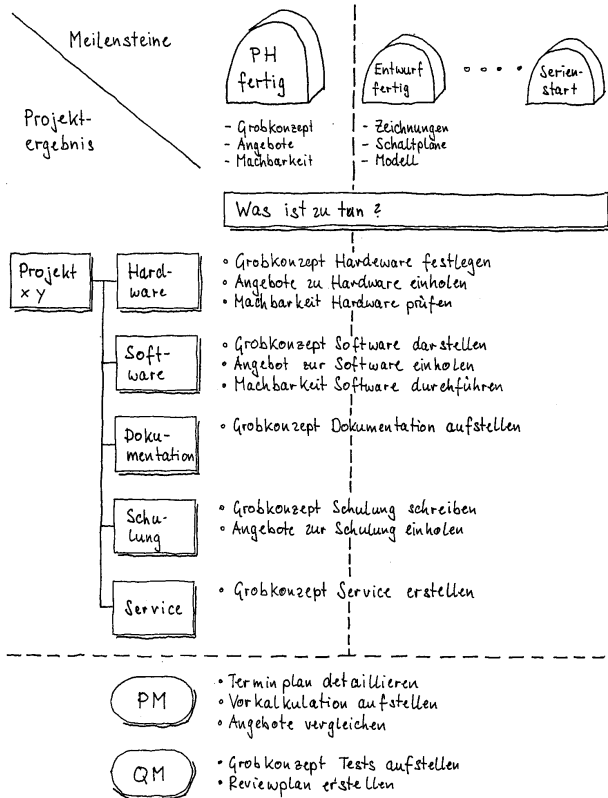 Meilensteine
Projekt-
ergebnis
PH
fertig
- Grobkonzept
- Angebote
- Machbarkeit
Entwurf
fertig
- Zeichnungen
- Schaltpläne
- Modell
Serien-
start
Was ist zu tun ?
Projekt
xy
Hard-
ware
• Grobkonzept Hardeware festlegen
• Angebote zu Hardware einholen
• Machbarkeit Hardware prüfen
Soft-
ware
• Grobkonzept Software darstellen
• Angebot zur Software einholen
• Machbarkeit Software durchführen
Doku-
mentation
• Grobkonzept Dokumentation aufstellen
Schu-
lung
• Grobkonzept Schulung schreiben
• Angebote zur Schulung einholen
Service
• Grobkonzept Service erstellen
PM
• Terminplan detaillieren
• Vorkalkulation aufstellen
• Angebote vergleichen
QM
• Grobkonzept Tests aufstellen
• Reviewplan erstellen